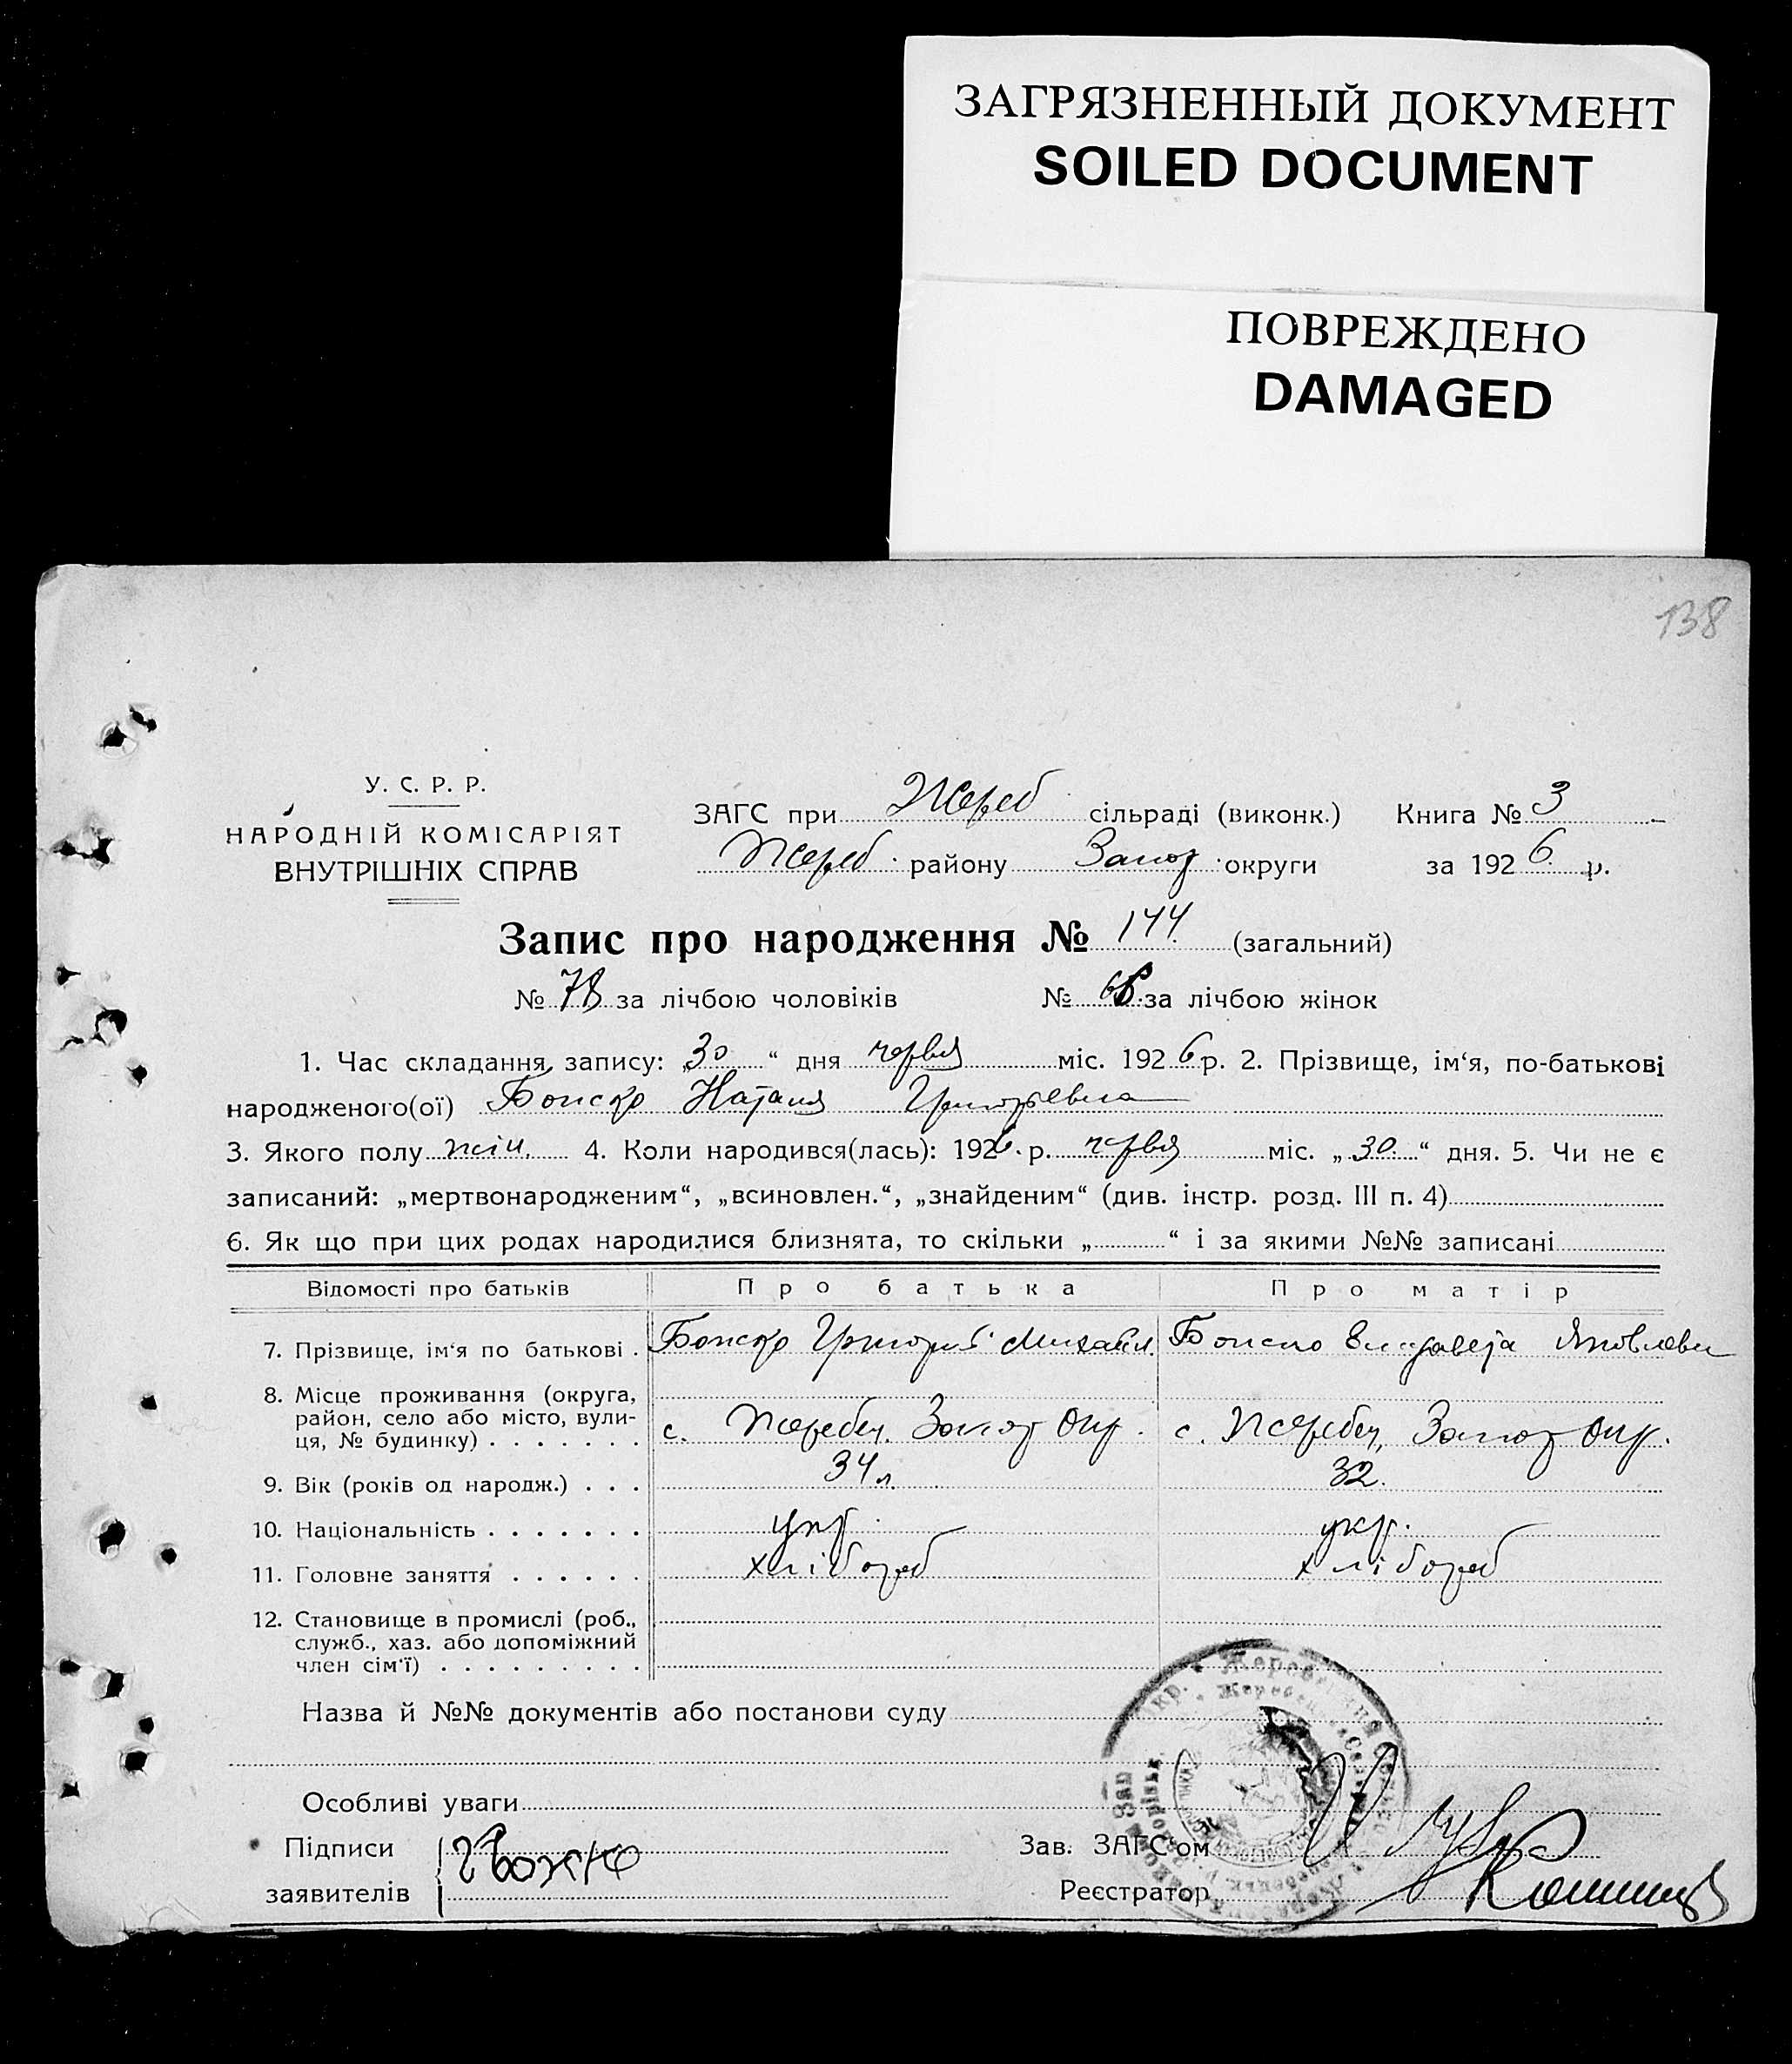 ЗАГРЯЗНЕННЫЙ ДОКУМЕНТ
SOILED DOCUMENT
ПОВРЕЖДЕНО
DAMAGED
138
У. С. Р. Р.
НАРОДНІЙ КОМІСАРІЯТ
ВНУТРІШНІХ СПРАВ
ЗАГС при Жереб сільраді (виконк.) Книга № 3
Жереб. району Запор. округи за 1926 р.
Запис про народження № 144 (загальний)
№ 78 за лічбою чоловіків № за лічбою жінок
1. Час складання запису: „30“ дня червня міс. 1926 р. 2. Прізвище, ім‘я, по-батькові
народженого(ої) Наталя Григорьевна
3. Якого полу жін. 4. Коли народився(лась): 1926 р. червня міс. „30“ дня. 5. Чи не є
записаний: „мертвонародженим“, „всиновлен.“, „знайденим“ (див. інстр. розд. III п. 4)
6. Як що при цих родах народилися близнята, то скільки „ “ і за якими №№ записані
Відомості про батьків Про батька Про матір
7. Прізвище, ім‘я по батькові . Григорий Михайл. Елизавета Яковлевн
8. Місце проживання (округа,
район, село або місто, вули-
ця, № будинку) . . . . . . . с. Жеребец. Запор Окр. с. Жеребец, Запор Окр.
9. Вік (років од народж.) . . . 34 л. 32.
10. Національність . . . . . . . укр. укр.
11. Головне заняття . . . . . . хлібороб хлібороб
12. Становище в промислі (роб.,
служб., хаз. або допоміжний
член сім‘ї) . . . . . . . . .
Назва й №№ документів або постанови суду
Особливі уваги
Підписи
заявителів
Зав. ЗАГС‘ом
Реєстратор